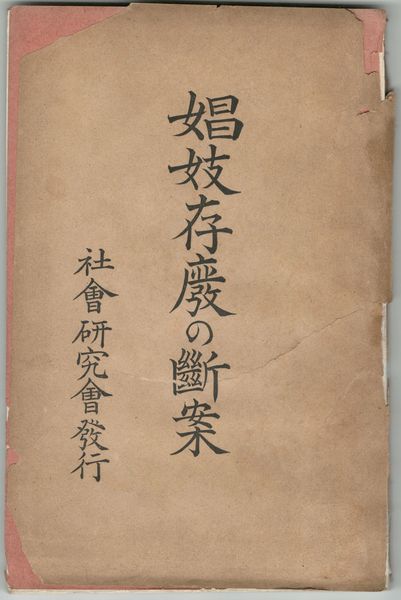 娼妓存廢の斷案
社會硏究會發行